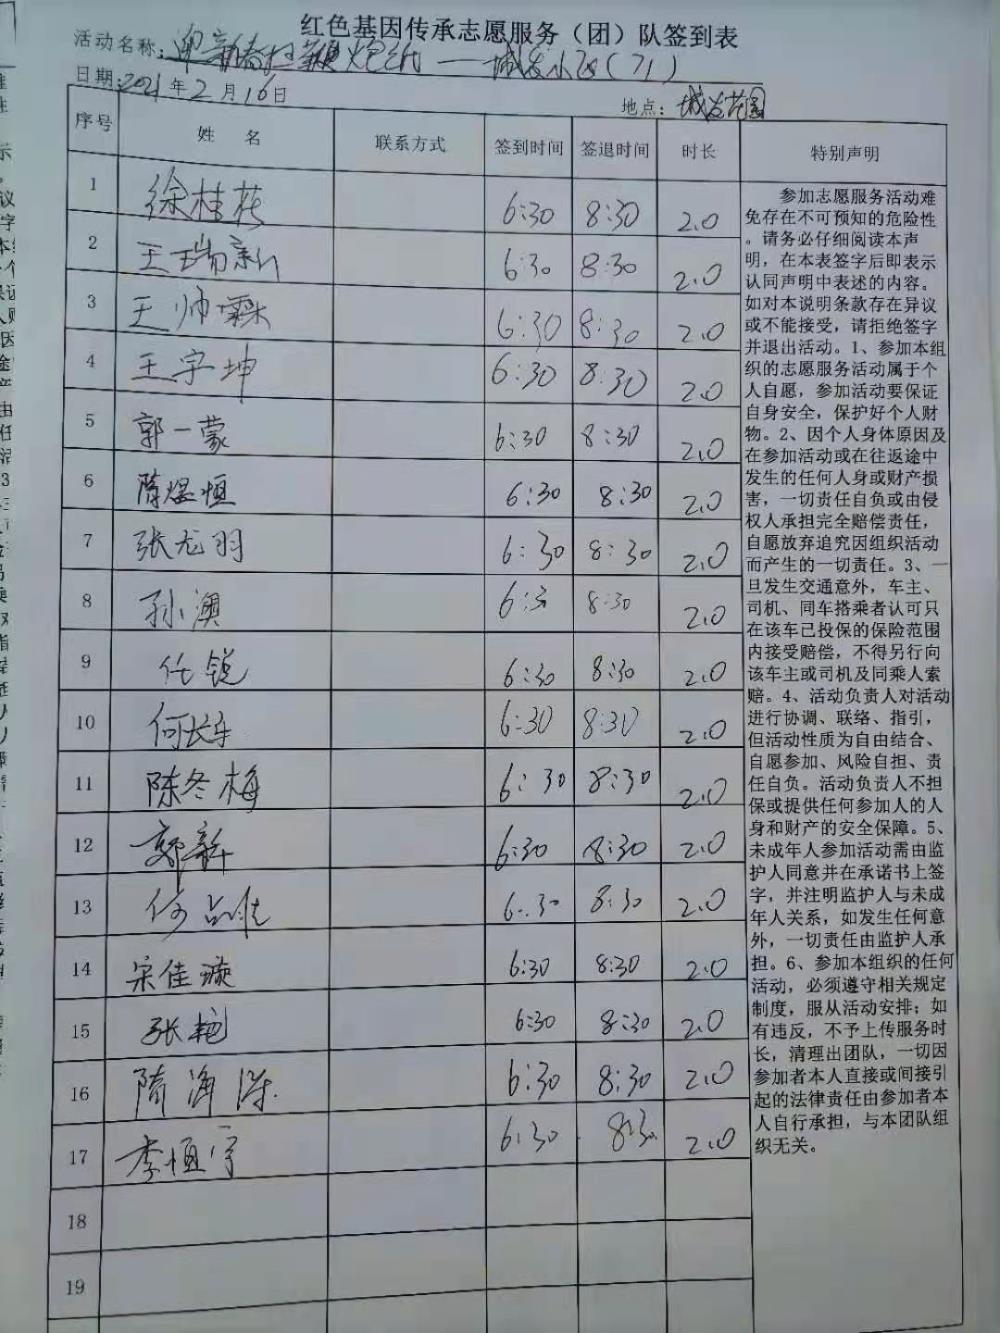 红色基因传承志愿服务（团）队签到表
活动名称：迎新春扫 炮纸——城发小区（71）
日期：2021年2月16日
地点：城发花园
序号 姓 名 联系方式 签到时间 签退时间 时长 特别声明
1 徐桂花 6:30 8:30 2.0
2 王瑞新 6:30 8:30 2.0
3 王帅霖 6:30 8:30 2.0
4 王宇坤 6:30 8:30 2.0
5 郭一蒙 6:30 8:30 2.0
6 隋煜恒 6:30 8:30 2.0
7 张龙羽 6:30 8:30 2.0
8 孙澳 6:3 8:30 2.0
9 任锐 6:30 8:30 2.0
10 何长车 6:30 8:30 2.0
11 陈冬梅 6:30 8:30 2.0
12 郭新 6:30 8:30 2.0
13 何 佳 6:30 8:30 2.0
14 宋佳璇 6:30 8:30 2.0
15 张艳 6:30 8:30 2.0
16 隋海深 6:30 8:30 2.0
17 李恒宇 6:30 8:30 2.0
18
19
参加志愿服务活动难
免存在不可预知的危险性
。请务必仔细阅读本声
明，在本表签字后即表示
认同声明中表述的内容。
如对本说明条款存在异议
或不能接受，请拒绝签字
并退出活动。1、参加本组
织的志愿服务活动属于个
人自愿，参加活动要保证
自身安全，保护好个人财
物。2、因个人身体原因及
在参加活动或在往返途中
发生的任何人身或财产损
害，一切责任自负或由侵
权人承担完全赔偿责任，
自愿放弃追究因组织活动
而产生的一切责任。3、一
旦发生交通意外，车主、
司机、同车搭乘者认可只
在该车已投保的保险范围
内接受赔偿，不得另行向
该车主或司机及同乘人索
赔。4、活动负责人对活动
进行协调、联络、指引，
但活动性质为自由结合、
自愿参加、风险自担、责
任自负。活动负责人不担
保或提供任何参加人的人
身和财产的安全保障。5、
未成年人参加活动需由监
护人同意并在承诺书上签
字，并注明监护人与未成
年人关系，如发生任何意
外，一切责任由监护人承
担。6、参加本组织的任何
活动，必须遵守相关规定
制度，服从活动安排；如
有违反，不予上传服务时
长，清理出团队，一切因
参加者本人直接或间接引
起的法律责任由参加者本
人自行承担，与本团队组
织无关。